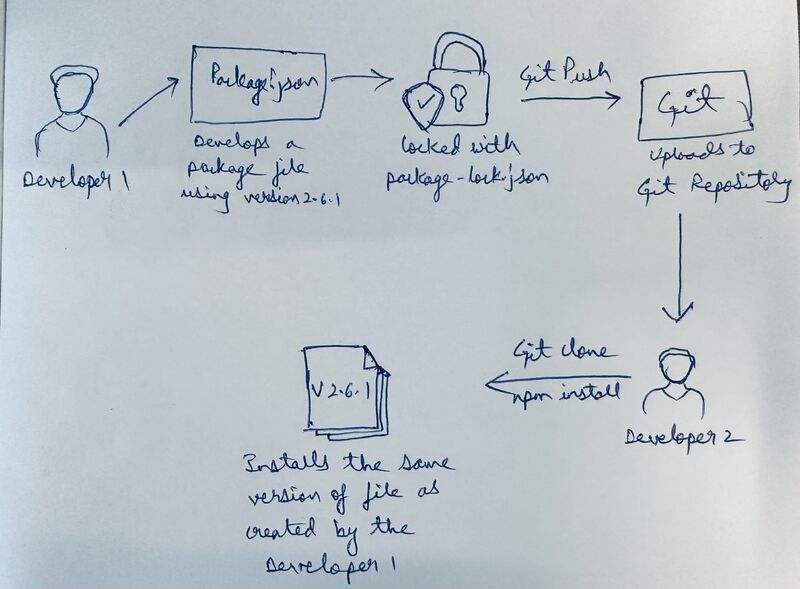 Package.json
Git Push
Git
Developer 1
Develops a
package file
using version 2.6.1
locked with
package-lock.json
Uploads to
Git Repository
Git clone
npm install
Developer 2
V 2.6.1
Installs the same
version of file as
created by the
Developer 1